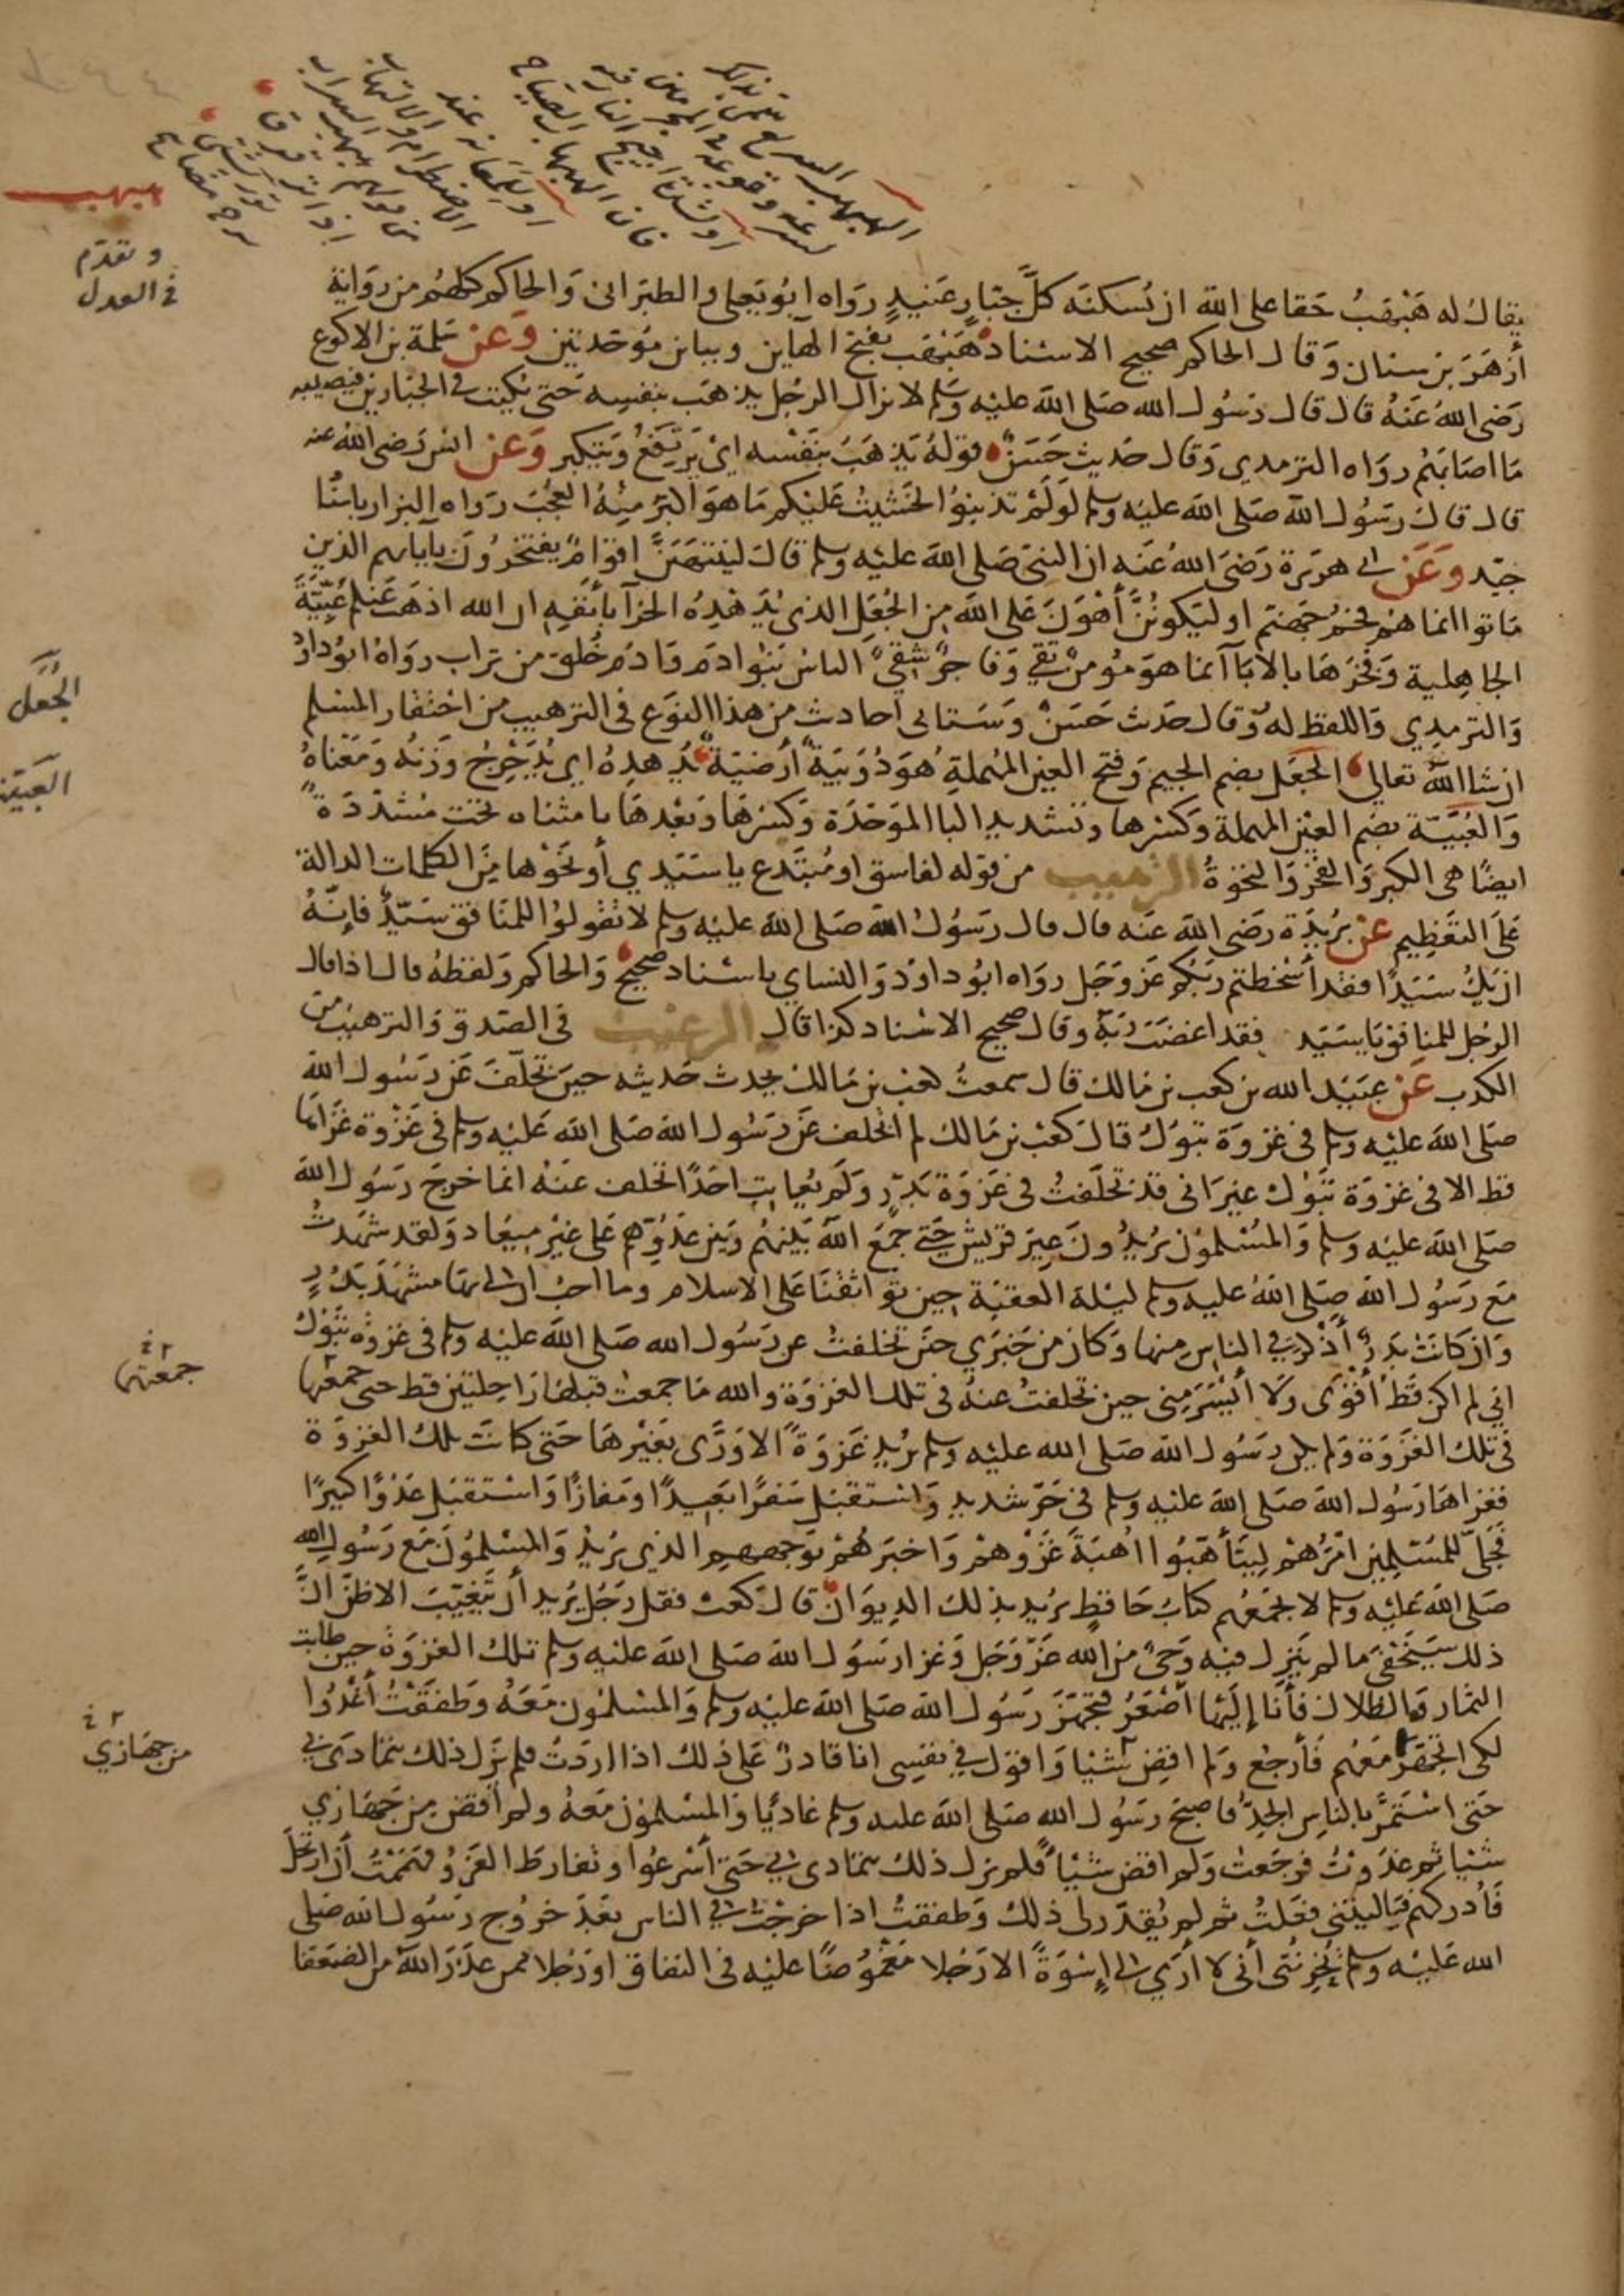 هبهب
وتقدم
في العدل
يقال له هَبْهَبُ حَقا على الله ان يُسكنَه كلَّ جبّارٍ عَنيدٍ رَوَاه ابُو يَعلى والطبَراني وَالحاكم كلهُم من روَاية
أزهَرَ بن سنان وَقال الحاكم صحيح الاسناد هَبْهَب بفتح الهاين وببائن مُوَحدتين وَعَن سَلمة بن الاكوع
رَضى اللهُ عَنهُ قال قال رسُول الله صَلى الله عليْه وسَلم لا يزال الرجُل يذهَب بنفسِه حَتى يُكتب في الجَبارين فيصيبه
مَا اصَابَهُم روَاه الترمدي وَقال حَديث حَسَن قولهُ يَذهَبُ بنَفْسه ايْ يَرتَفعُ وَيَتكبر وَعَن انس رَضي الله عنه
قال قال رسَول الله صَلى الله عليْه وسلم لوَ لَمْ تذنبوُا لخَشيتُ عَليْكم مَا هوَ اكبرَ مِنْهُ العجُبَ رَوَاه البزار باسنا
جيّد وَعَن ابي هريَرة رَضيَ اللهُ عَنه ان النبيَ صَلى الله عليْه وسلم قال لينتهَيَنَّ اقوَامٌ يفتخرُونَ بآبايهم الذين
مَاتوا انما هم فَحْمُ جَهَنم او ليَكونُنَّ أهْوَنَ عَلى الله من الجُعَلِ الذي يُدَهْدِهُ الخِرَآ بأنفِهِ ان الله اذهَبَ عَنكم عُبِّيَّةَ
الجاهِلية وَفَخْرَهَا بالابَآ انما هوَ مُومنٌ تقي وَفاجِرٌ شقيٌّ الناس بَنوا ادَم وَادَم خُلقَ من تراب روَاهُ ابوُ داوُدَ
وَالترمدي وَاللفظ له وقال حَدث حَسَنٌ وَسَتاتي احادث من هذا النوَع في الترهيب من احتقار المسلم
ان شا اللهُ تعالى الجُعَل بضم الجيم وَفتح العين المهملةِ هُوَ دُوَيبَةٌ أرضيَة يُدَهدِهُ اي يُدَحْرِجُ وَزنهُ وَمَعْناهُ
وَالعُبَيَّة بضم العين المهملة وَكسْرها وَتشديد البا الموَحدَة وَكسْرهَا وَبَعْدهَا يا مثناه تحت مُشدّدَةٌ
ايضًا هى الكبر وَالفخر وَالنخوَةُ الترهيب من قوله لفاسق او مُبتدع يا سَيّدي أو نَحْوها منَ الكلمات الدالة
عَلَى التعَظيم عنْ بُرَيْدَة رَضيَ الله عَنه قال قال رَسُولُ الله صَلى الله عليْه وسلم لا تقولوُا للمنَافق سَيّدٌ فإنَّهُ
ان يَكُ سَيّدًا فقد أسْخطتم رَبَكم عَز وَجَل روَاه ابوُ داوُدَ وَالنساي باسناد صحيح وَالحاكم وَلفظهُ قال اذا قال
الرجل للمنافق يَا سَيّد فقد اغضَبَ رَبّهُ وقال صحيح الاسناد كذا قال الترغيب في الصّدق وَالترهيب من
الكدب عَنْ عبَيْد الله بن كعب بن مَالك قال سمعتُ كعب بن مَالك يحدث حَديثه حينَ تخلَّفَ عَن رَسُول الله
صَلى الله عليْه وسلم في غزوَة تبوُك قال كعب بن مَالك لم اتخلف عَن رَسُول الله صَلى الله عَليْه وسلم في غَزوة غَزَاهَا
قط الا في غزوَة تبَوُك غيرَ اني قدْ تخلَّفتُ في غَزوَة بَدْرٍ وَلَم يُعاتِب احَدًا تخلف عَنهُ انما خرجَ رَسُول الله
صَلى الله عليْه وسلم وَالمُسْلموُن يُريدُونَ عِيرَ قريش حَتى جمعَ الله بَيْنهُم وَبَين عَدُوِّهم عَلى غيْر مِيعَاد وَلقد شهدتُ
مَع رَسُول الله صَلى اللهُ عليه وسلم ليْلة العقبَة حين تواثقْنَا عَلى الاسلام وما احبّ ان لي بهَا مشهَدَ بَدْرٍ
وَان كانَتْ بَدرٌ أذكَر في الناس منها وَكان من خبَري حينَ تخلفتُ عن رَسُول الله صَلى الله عليْه وسلم في غزوة تبوُك
اني لم اكن قَط أقْوَى وَلا أيْسَرَ مِنى حين تخلفتُ عنهُ في تلك الغزوَة والله مَا جمعت قبلهَا رَاحِلتين قط حتى جمعتها
جمعتهما
في تلك الغَزوَة وَلم يكن رسَول الله صَلى الله عليْه وسلم يُريد غَزوَةً الا وَرَّى بغَيْرهَا حَتى كانَت تلك الغزوَة
فغزاهَا رَسُول الله صَلى الله عليْه وسلم في حَرّ شديد وَاستقبَل سَفرًا بَعيدًا وَمَفازًا وَاستقبَل عَدُوًّا كثيرًا
فَجَلَّى للمُسْلمِين امْرَهُمْ ليَتَأهَّبُوا اهْبَةَ غَزْوِهمْ وَاخبَرَهُمْ بوَجههم الذي يُريدُ وَالمسْلموُنَ مَع رَسُول الله
صَلى الله عَليْه وسلم لا يَجمَعُهم كتابٌ حَافظٍ يُريد بذلك الديوَانَ قال كعب فقل رَجُل يُريد أن يَتغيَّبَ الا ظنّ انَّ
ذلك سَيَخْفَى مَا لم يَنزِل فيه وَحيٌ من الله عَزّ وَجَل وَغزا رسَول الله صَلى الله عليْه وسلم تلك الغزوَة حين طابت
الثمار وَالظلال فأَنَا إليَها أصْعَرُ فتجهَزَ رَسُول الله صَلى الله عليْه وسلم وَالمسْلموُن مَعَهُ وَطَفقْتُ أَغْدُوا
لكي اتجهَّزَ مَعَهُم فَأرجع وَلم اقضِ شيْيا وَاقول في نفسِى انا قادرٌ عَلى ذلك اذا اردَتُ فلم يَزَل ذلك يتمادَى بي
من جهازي
حَتى اسْتمَرَّ بالناس الجِدّ فاصبحَ رَسُول الله صَلى الله عليه وسلم غاديًا وَالمسْلموُن مَعَهُ ولم أقضِ من جَهَازي
شيْيا ثم غدَوْتُ فرجَعتُ وَلم اقض شيْيا فلم يزل ذلك يتمادى بي حَتى أسْرعُوا وتفارطَ الغَزوُ فهَمَمْتُ أن ارتحلَ
فَأدركهُم فيَاليْتني فعَلتُ ثم لم يُقدّر لى ذلك وَطفقتُ اذا خرجْتُ في الناس بَعْدَ خرُوج رَسُول الله صَلى
الله عَليْه وسلم يُحْزِنُنى أنى لا أرَي لي إسْوَةً الا رَجُلا مَغْموُصًا عليْه في النفاق او رَجُلا ممن عذَرَ اللهُ من الضعَفا
الجُعَل